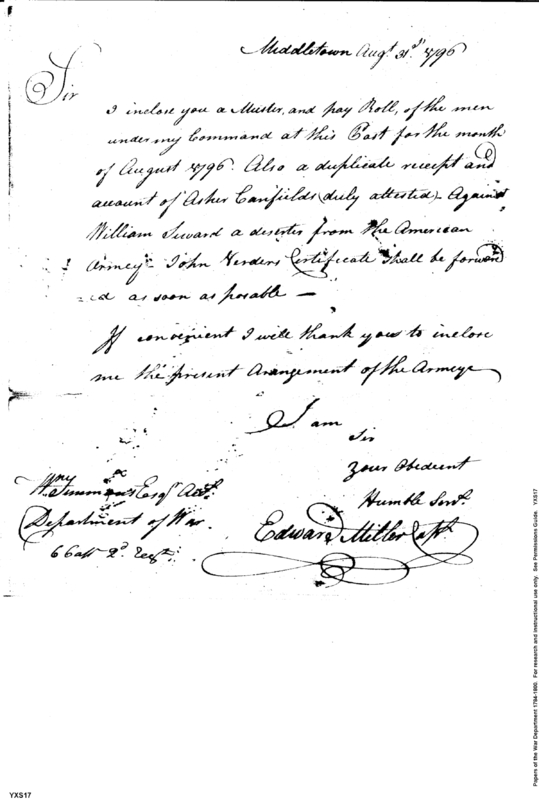 Middletown Augt. 31st. 1796
Sir
I inclose you a Muster, and pay Roll, of the men
under my Command at this Post for the month
of August 1796. Also a duplicate receipt and
account of Asher Canfields (duly attested) Against
William Seward a deserter from the American
Armey - John Verders Certificate Shall be forward
ed as soon as posable —
If convenient I will thank you to inclose
me the present Arangement of the Armeye
I am
Sir
Your Obedient
Humble Servt.
Edward Miller Capt.
Wm. Simmons Esqr. Act.
Department of War.
2d. Regt.
YXS17
Papers of the War Department 1784-1800. For research and instructional use only. See Permissions Guide. YXS17